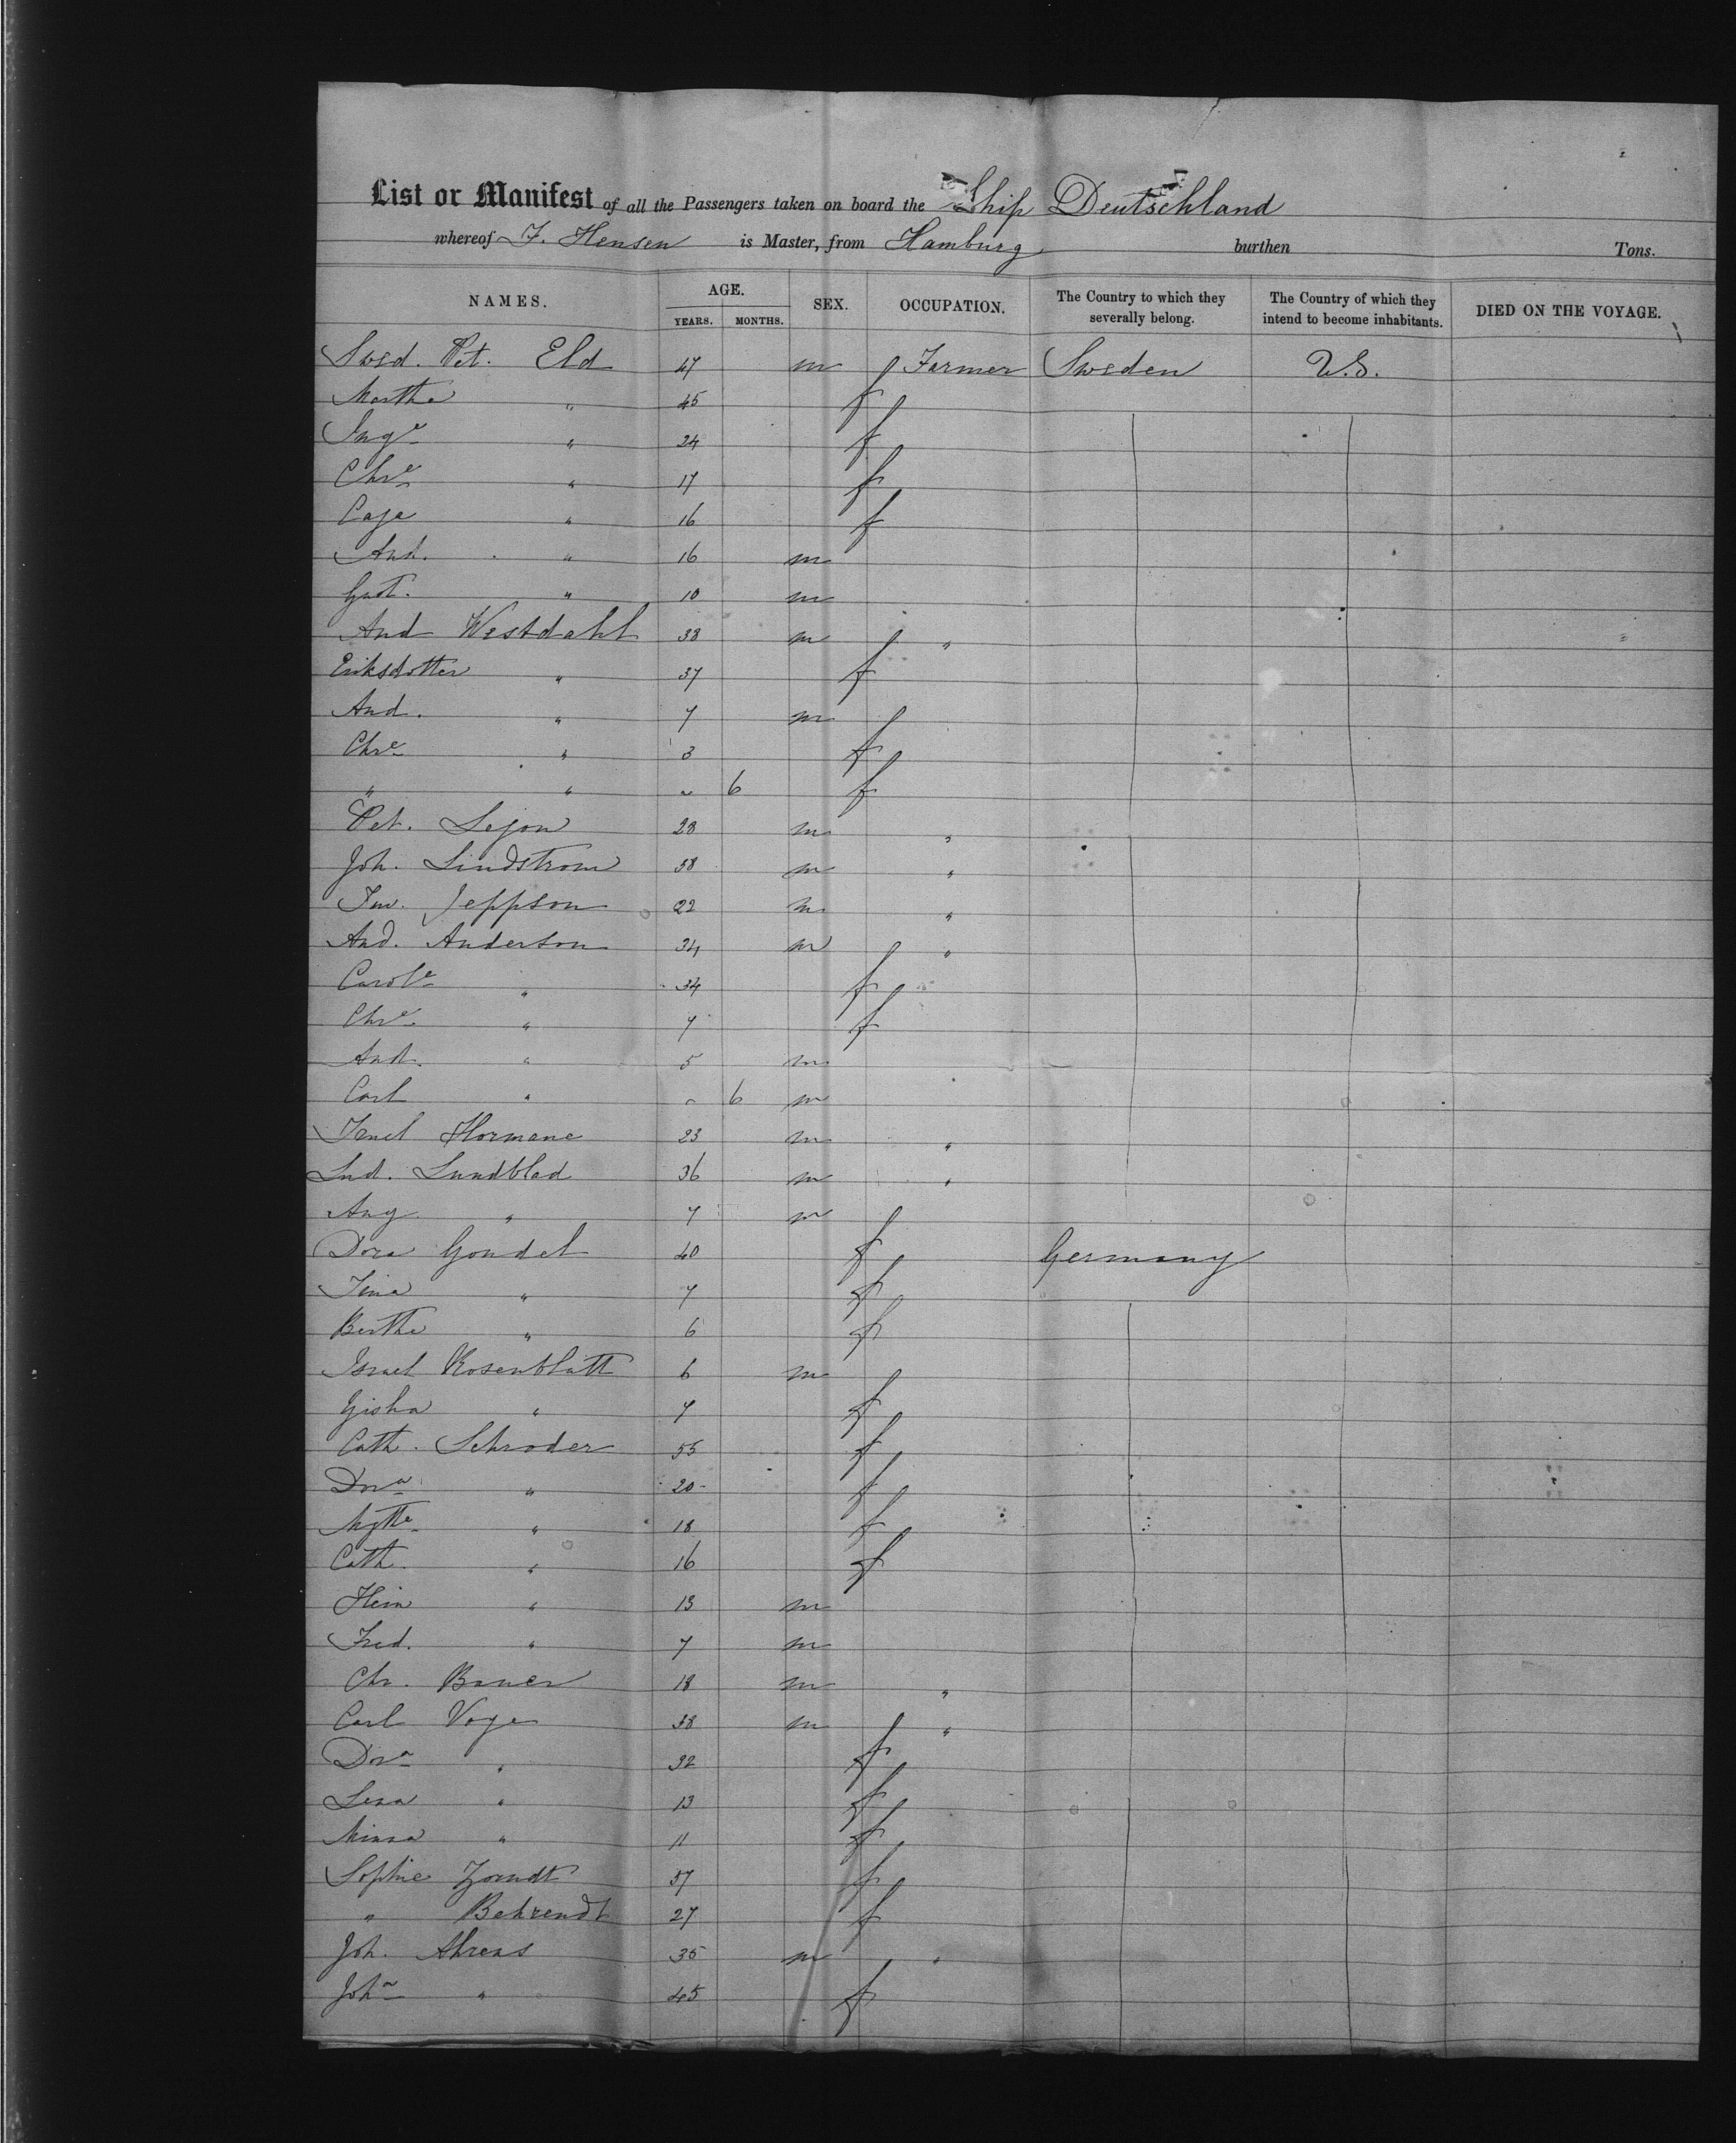 List or Manifest of all the Passengers taken on board the Ship Deutschland
whereof F. Hensen is Master, from Hamburg burthen Tons.
NAMES. AGE. YEARS. MONTHS. SEX. OCCUPATION. The Country to which they severally belong. The Country of which they intend to become inhabitants. DIED ON THE VOYAGE.
Pet. Eld 47 m Farmer Sweden U.S.
Martha " 45 f
Inga " 24 f
Chre " 17 f
Caja " 16 f
And. " 16 m
Gust. " 10 m
And Westdahl 38 m "
Eriksdotter " 37 f
And. " 7 m
Chre " 3 f
" " " 6 f
Pet. Lejon 28 m "
Joh. Lindstrom 38 m "
Jeppson 22 m "
And. Anderson 34 m "
Carole " 34 f
Chre " 7 f
And. " 5 m
Carl " " 6 m
Hormane 23 m "
Lud. Lundblad 36 m "
Aug " 7 m
Dora Gondel 40 f Germany
Tina " 7 f
Berthe " 6 f
Israel Rosenblatt 6 m
Gisha " 7 f
Cath. Schroder 55 f
Dora " 20 f
Mgtte " 18 f
Cath. " 16 f
Hein " 13 m
Fred. " 7 m
Chr. Bauer 18 m "
Carl Voge 38 m "
Dora " 32 f
Lena " 13 f
Minna " 11 f
Sophie Zorndt 57 f
" Behrendt 27 f
Joh. Ahrens 35 m "
Joha " 45 f